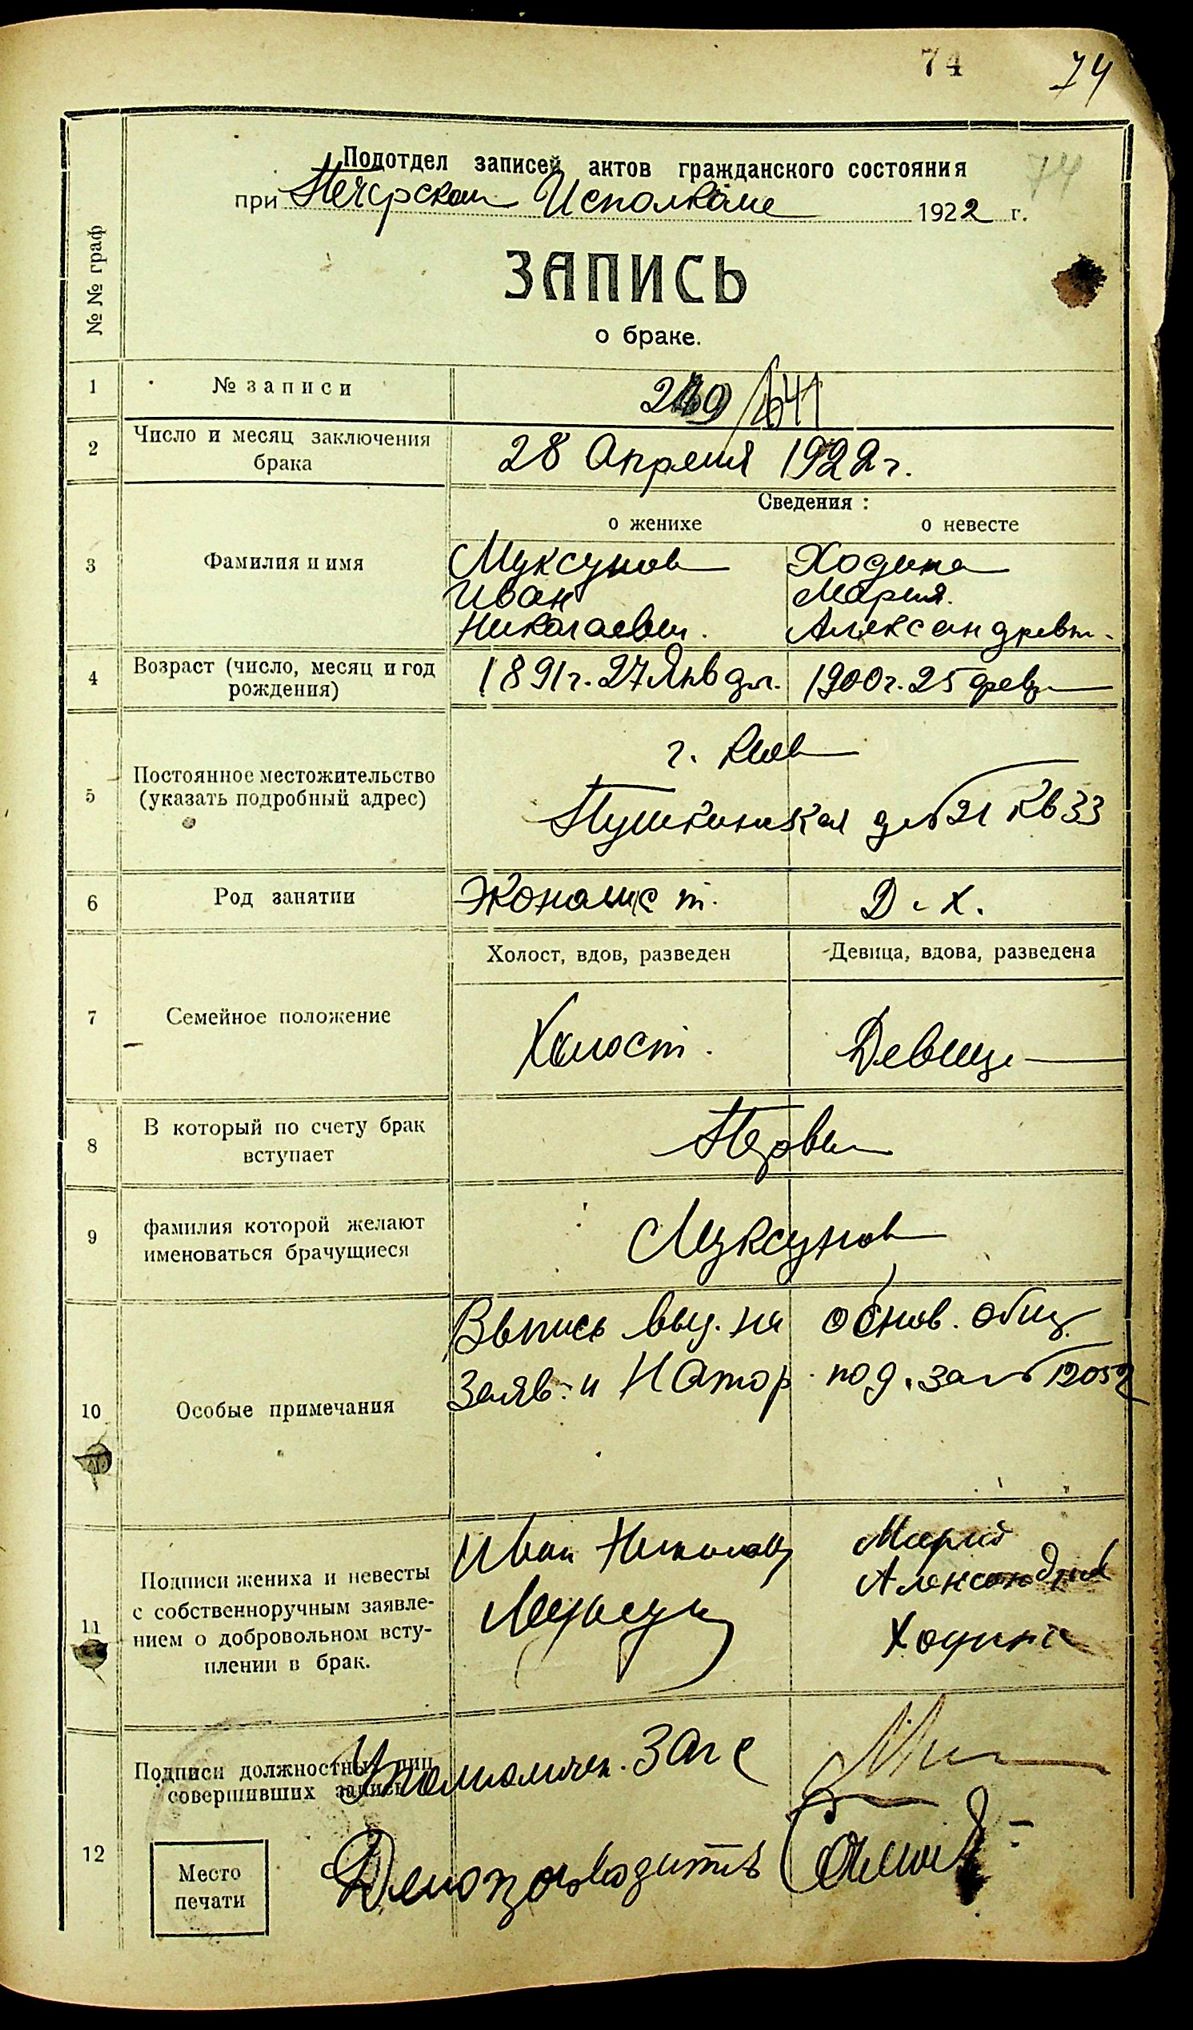 74 74
74
Подотдел записей актов гражданского состояния
при Печерском Исполкоме 1922 г.
ЗАПИСЬ
о браке.
№ № граф
1 № записи
2 Число и месяц заключения брака 28 Апреля 1922 г.
Сведения :
о женихе о невесте
3 Фамилия и имя Муксунов Ходина
Иван Мария.
Николаевич. Александровн.
4 Возраст (число, месяц и год рождения) 1891 г. 27 Янв 1900 г. 25 февр
5 Постоянное местожительство (указать подробный адрес) г. Киев
Пушкинская д № 21 кв 33
6 Род занятии Экономист. Д. х.
Холост, вдов, разведен Девица, вдова, разведена
7 Семейное положение Холост. Девица
8 В который по счету брак вступает Первый
9 фамилия которой желают именоваться брачущиеся Муксунов
10 Особые примечания Выпись выд. на основ. общ.
заяв. и под. за № 12052
11 Подписи жениха и невесты с собственноручным заявлением о добровольном вступлении в брак.
Иван Мария
Александров
Ходина
12 Подписи должностных лиц совершивших запись Загс
Место печати Делопроизводитель